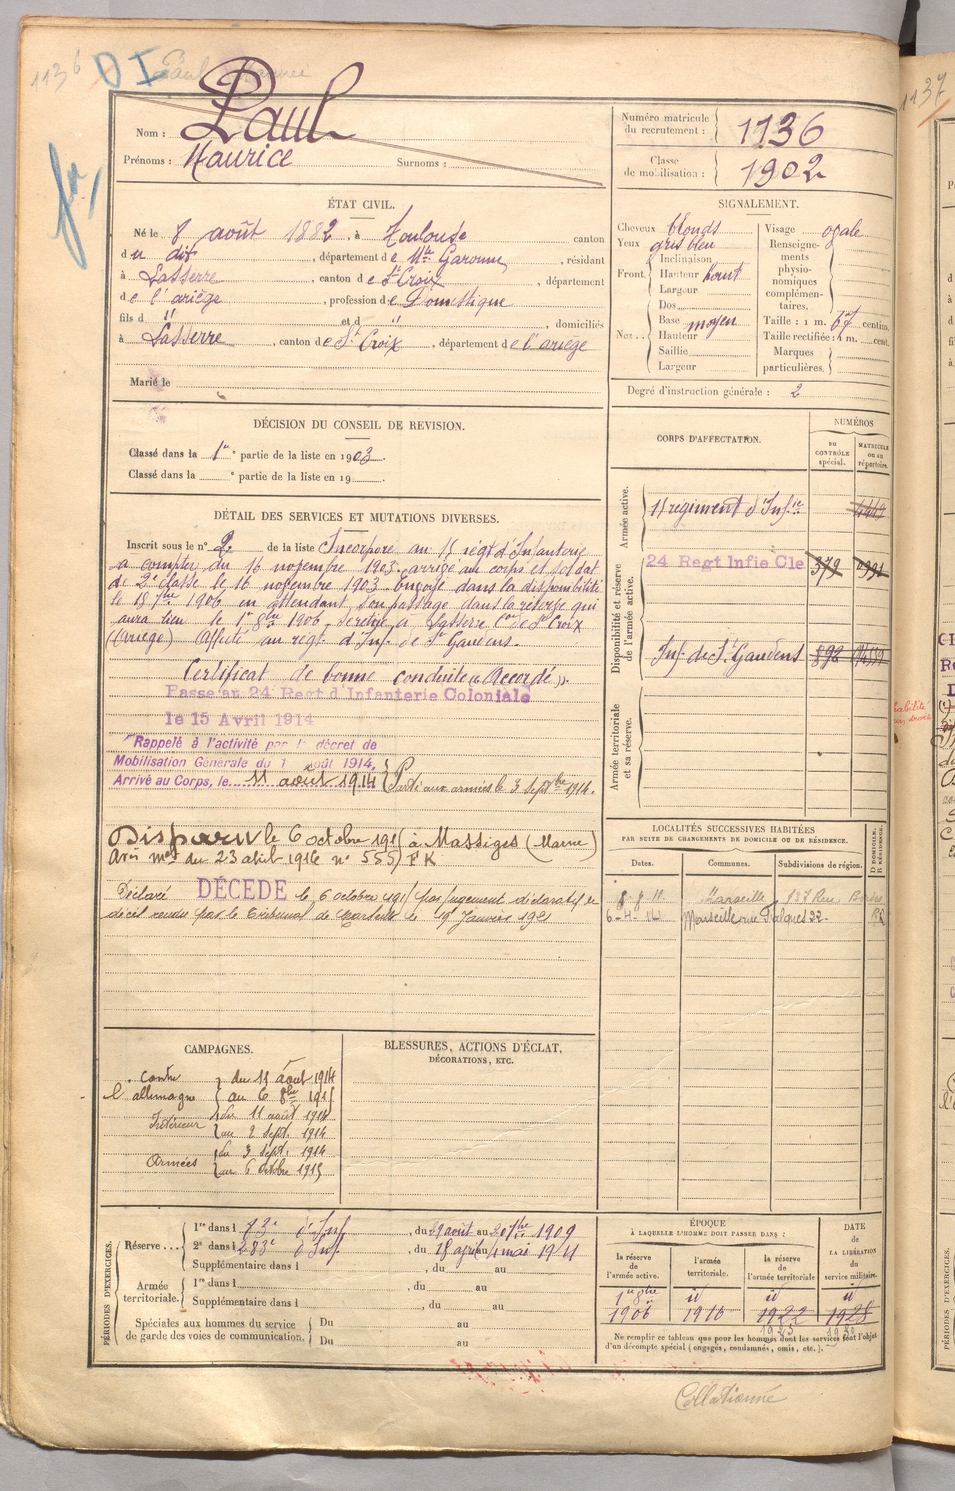 1136 DI Paul Maurice
fm
Nom : Paul
Prénoms : Maurice Surnoms :
Numéro matricule du recrutement : 1136
Classe de mobilisation : 1902
ÉTAT CIVIL.
Né le 8 août 1882, à Toulouse canton
du dit, département de Hte Garonne, résidant
à Lasserre, canton de St Croix, département
de l'ariège, profession de Domestique
fils d " et d ", domiciliés
à Lasserre, canton de St Croix, département de l'ariège
Marié le
SIGNALEMENT.
Cheveux blonds
Yeux gris bleu
Front. Inclinaison
Hauteur haut
Largeur
Nez... Dos
Base moyen
Hauteur
Saillie
Largeur
Visage ovale
Renseignements physionomiques complémentaires.
Taille : 1 m. 67 centim.
Taille rectifiée : 1 m. cent.
Marques particulières.
Degré d'instruction générale : 2
DÉCISION DU CONSEIL DE REVISION.
Classé dans la 1re partie de la liste en 1903.
Classé dans la ° partie de la liste en 19
DÉTAIL DES SERVICES ET MUTATIONS DIVERSES.
Inscrit sous le n° 2 de la liste Incorporé au régt d'Infanterie
à compter du 16 novembre 1903. arrivé au corps et soldat
de 2e classe le 16 novembre 1903. Envoyé dans la disponibilité
le 18 7bre 1906 en attendant son passage dans la réserve qui
aura lieu le 1er 8bre 1906. se retire à Lasserre Con de St Croix
(Ariège) Affecté au régt d'Inf. de St Gaudens.
Certificat de bonne conduite « Accordé ».
Passé au 24 Regt d'Infanterie Coloniale
le 15 Avril 1914
Rappelé à l'activité par le décret de
Mobilisation Générale du 1 août 1914,
Arrivé au Corps, le 11 août 1914 Parti aux armées le 3 septbre 1914.
Disparu le 6 octobre 1915 à Massiges (Marne)
Avis mel du 23 abril 1916 n° 555) F K
Déclaré DÉCÉDÉ le 6 octobre 1915 par jugement déclaratif de
décès rendu par le Tribunal de Marseille le Janvier 1921
CORPS D'AFFECTATION.
NUMÉROS
au contrôle spécial.
matricule ou au répertoire.
Armée active.
régiment d'Infie
Disponibilité et réserve de l'armée active.
24 Regt Infie Cle 379
Inf. de St Gaudens 892
Armée territoriale et sa réserve.
LOCALITÉS SUCCESSIVES HABITÉES
PAR SUITE DE CHANGEMENTS DE DOMICILE OU DE RÉSIDENCE.
Dates. Communes. Subdivisions de région. D domicile. R résidence.
Marseille 137 Rue
6-4-14 Marseille rue 22 R
CAMPAGNES.
contre l'allemagne du 11 août 1914
au 6 8bre 1915
Intérieur du 11 août 1914
au 2 sept. 1914
Armées du 3 sept. 1914
au 6 octobre 1915
BLESSURES, ACTIONS D'ÉCLAT,
DÉCORATIONS, ETC.
PÉRIODES D'EXERCICES.
Réserve... 1re dans l d'Inf, du 29 août au 20 7bre 1909
2e dans l 283e d'Inf, du 18 avril au 4 mai 1911
Supplémentaire dans l, du au
Armée territoriale. 1re dans l, du au
Supplémentaire dans l, du au
Spéciales aux hommes du service de garde des voies de communication. Du au
Du au
ÉPOQUE
À LAQUELLE L'HOMME DOIT PASSER DANS :
la réserve de l'armée active.
l'armée territoriale.
la réserve de l'armée territoriale
DATE de LA LIBÉRATION du service militaire.
1er 8bre " " "
1906 1916 1922 1928
Ne remplir ce tableau que pour les hommes dont les services font l'objet
d'un décompte spécial (engagés, condamnés, omis, etc.).
Collationné
1137